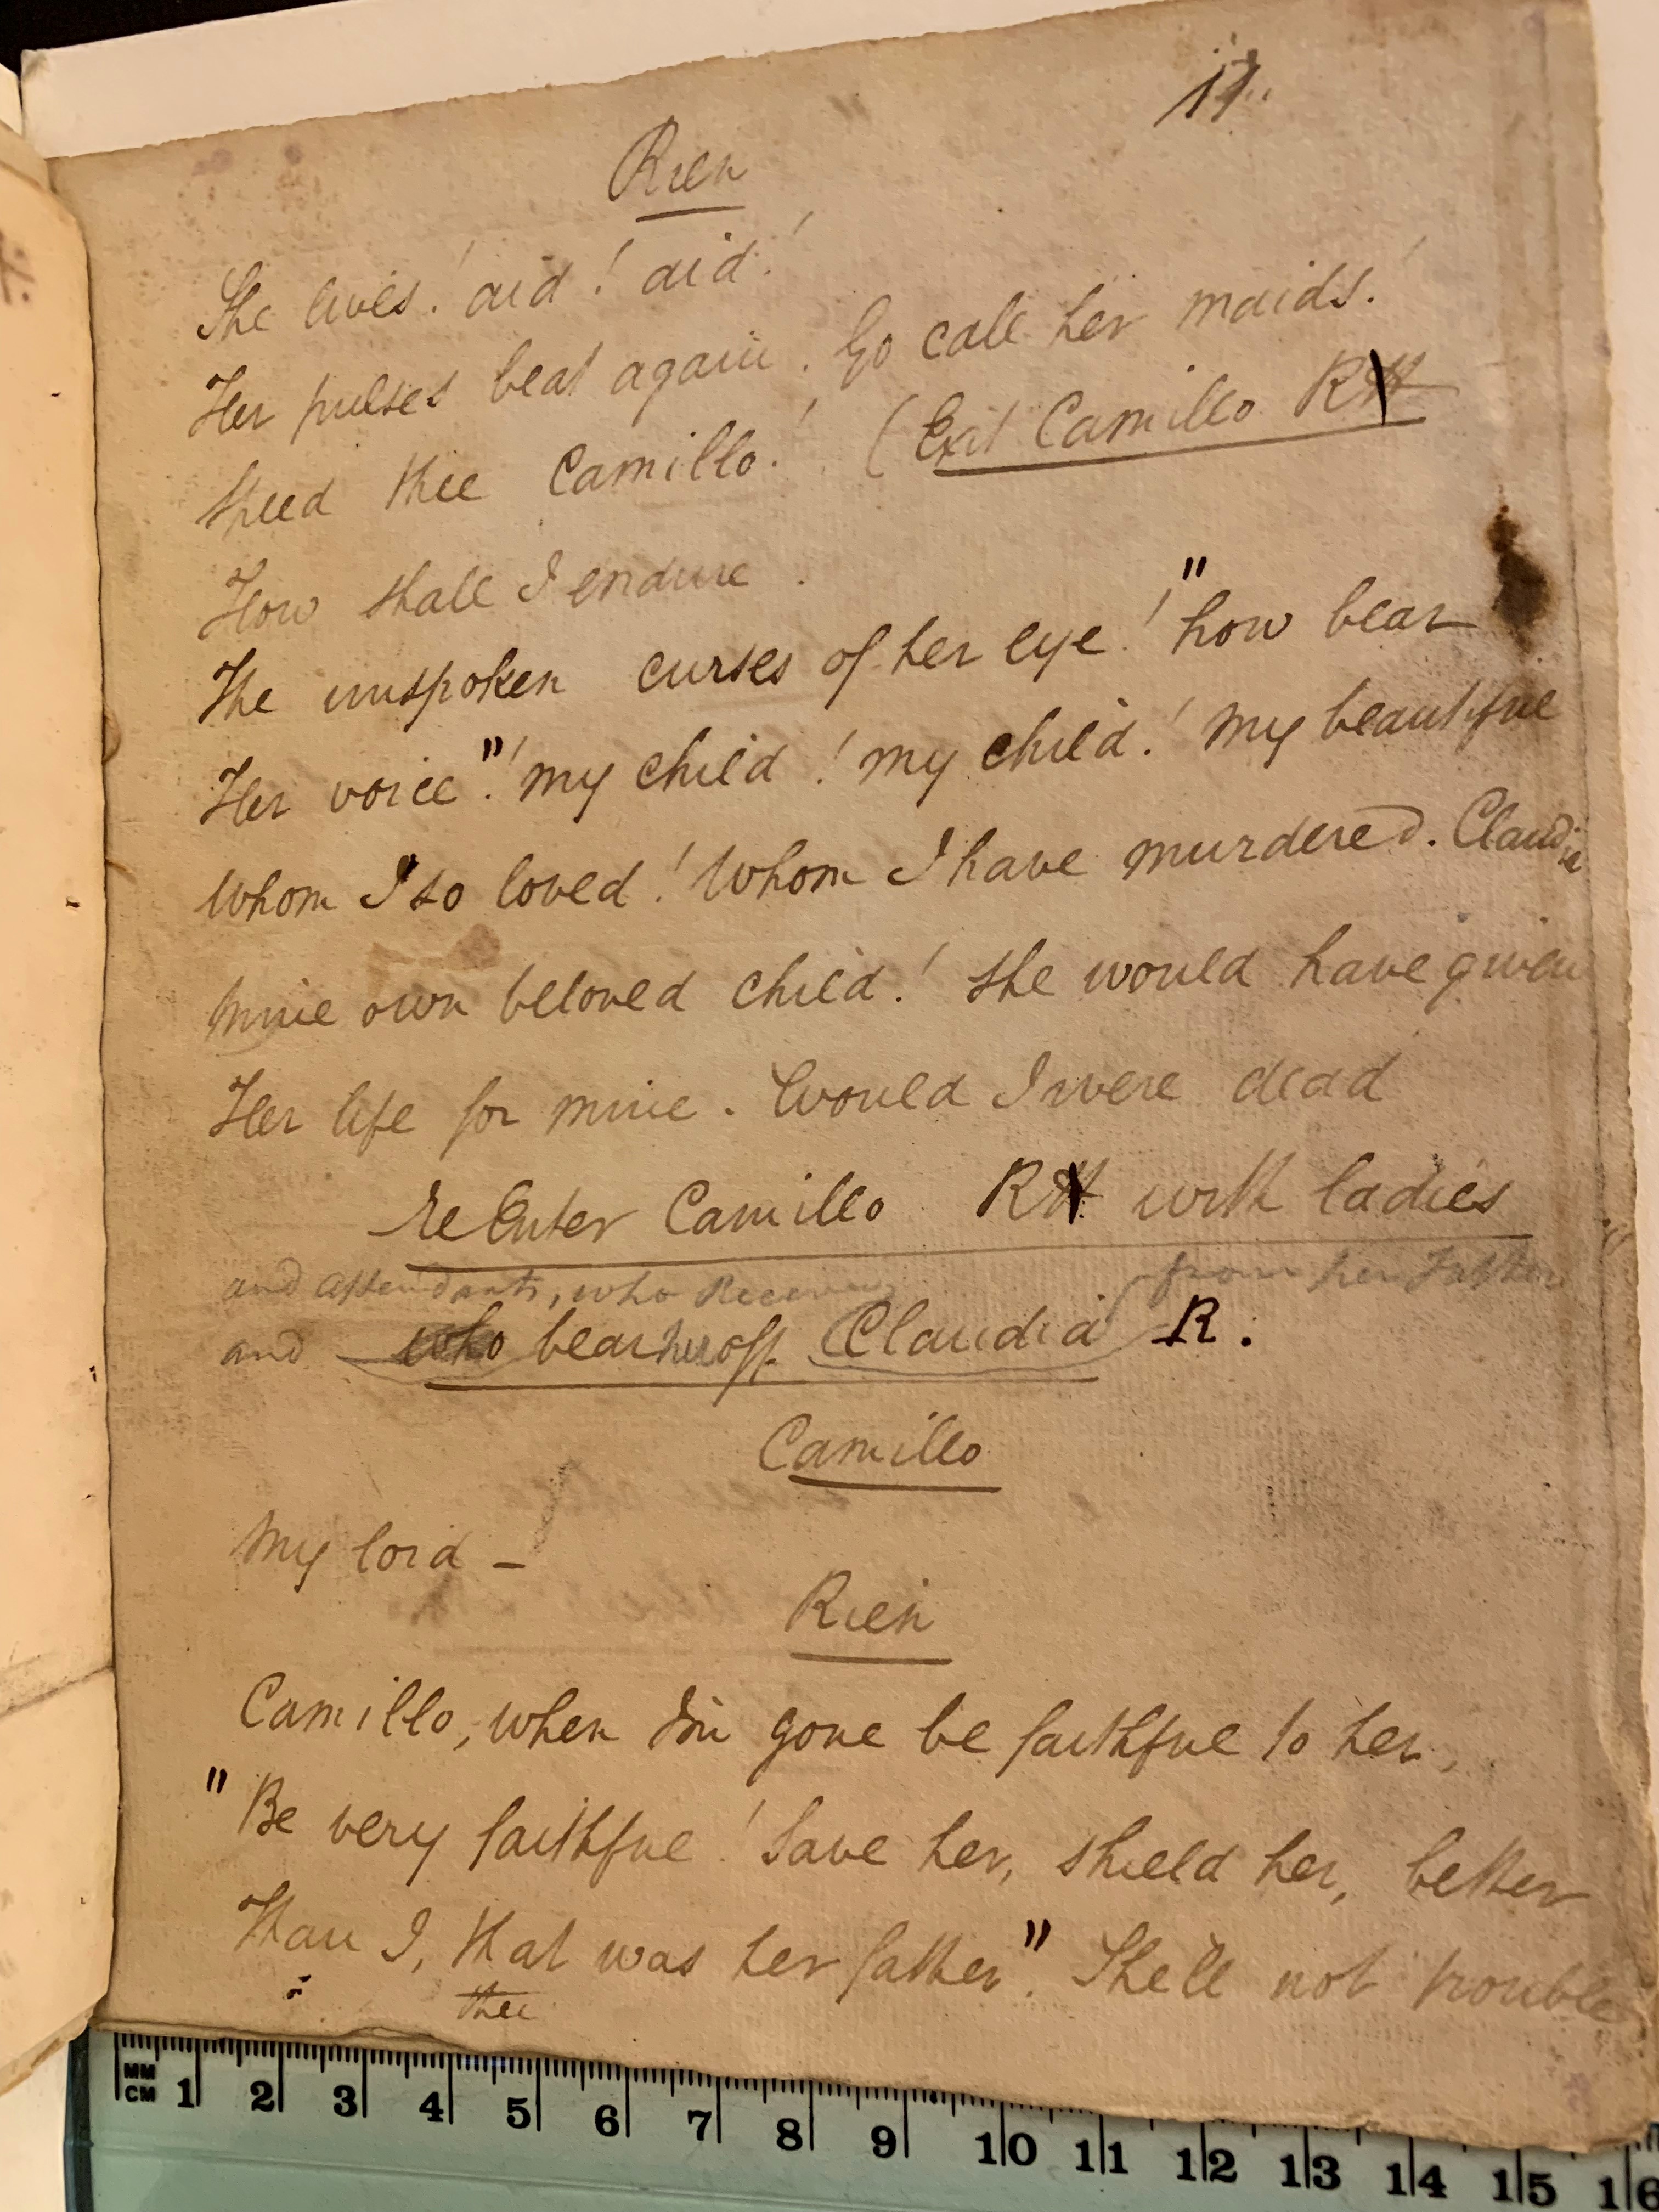 11.
Rien
She lives! aid! aid!
Her pulses beat again. Go call her maids!
Speed thee Camillo! (Exit Camillo R
How shall I endure.
The unspoken curses of her eye! "how bear
Her voice"! my child! my child! My beautiful
Whom I so loved! Whom I have murdered. Claudia
mine own beloved child! She would have given
Her life for mine. Would I were dead
ReEnter Camillo R with ladies
and attendants, who Receive from her Father
and who bear her off Claudia R.
Camillo
My lord –
Rien
Camillo, when I'm gone be faithful to her,
"Be very faithful! Save her, shield her, better
Than I, that was her father". She'll not trouble
thee
MM
CM 1 2 3 4 5 6 7 8 9 10 11 12 13 14 15 16